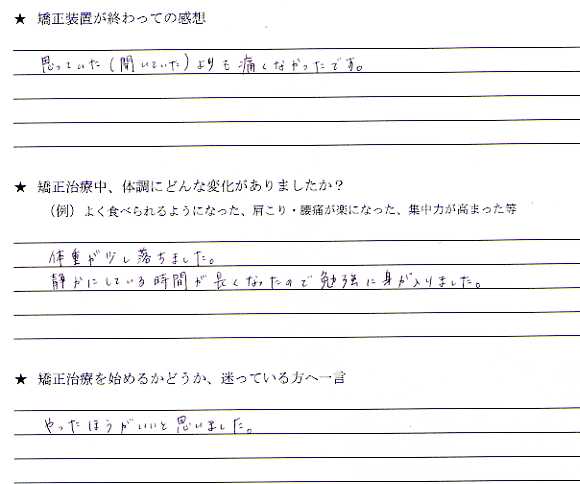 ★ 矯正装置が終わっての感想
思っていた(聞いていた)よりも痛くなかったです。
★ 矯正治療中、体調にどんな変化がありましたか？
（例）よく食べられるようになった、肩こり・腰痛が楽になった、集中力が高まった等
体重が少し落ちました。
静かにしている時間が長くなったので勉強に身が入りました。
★ 矯正治療を始めるかどうか、迷っている方へ一言
やったほうがいいと思いました。